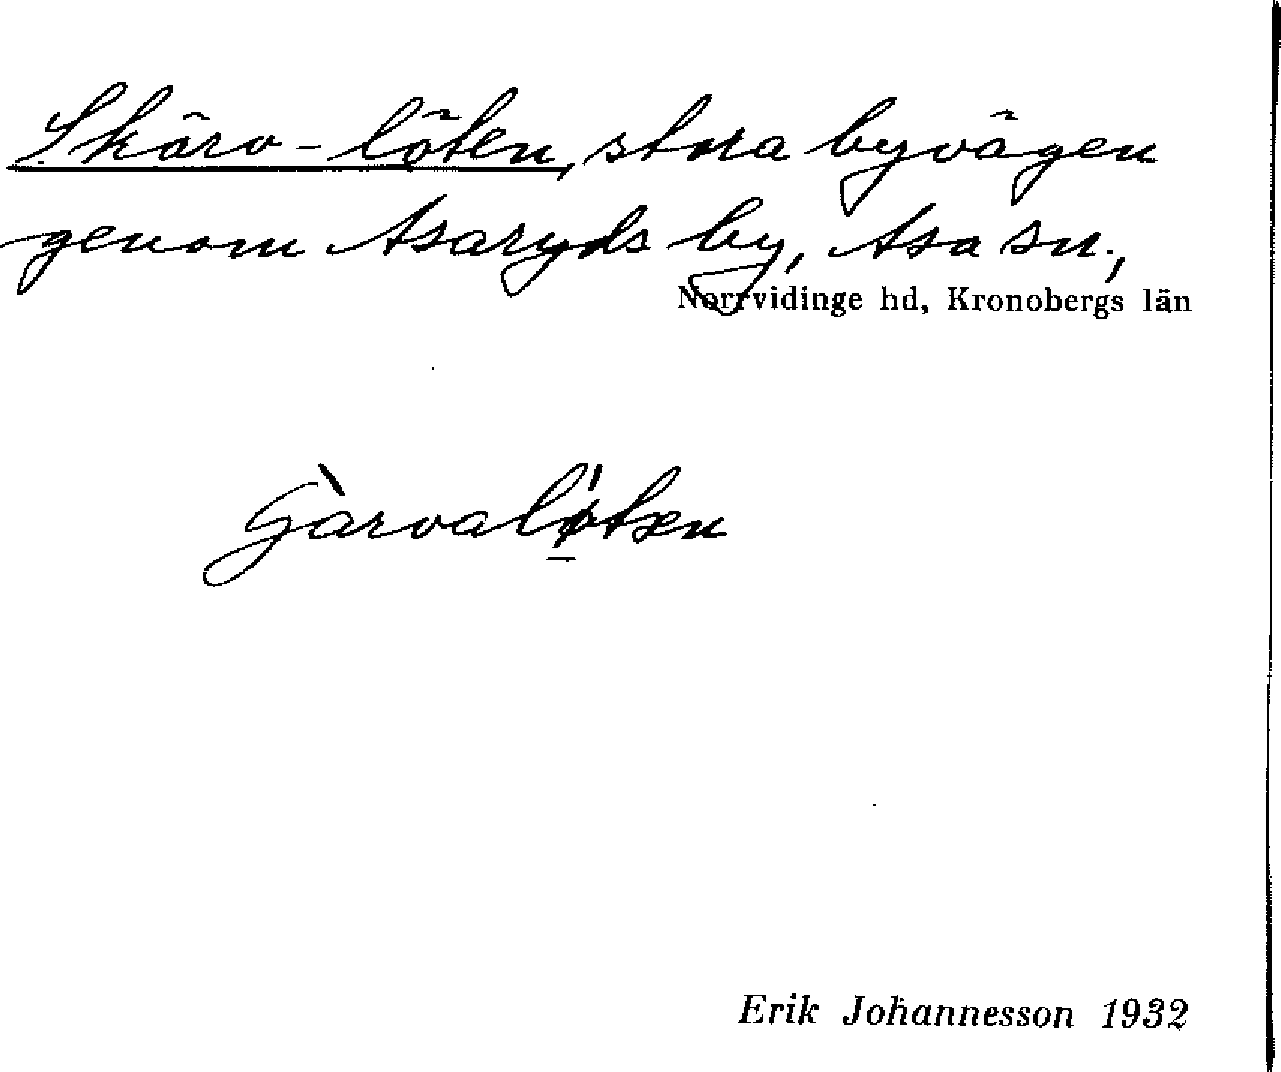 Skärv-löten, stora byvägen
genom Asaryds by, Asa sn.,
Norrvidinge hd, Kronobergs län
Erik Johannesson 1932